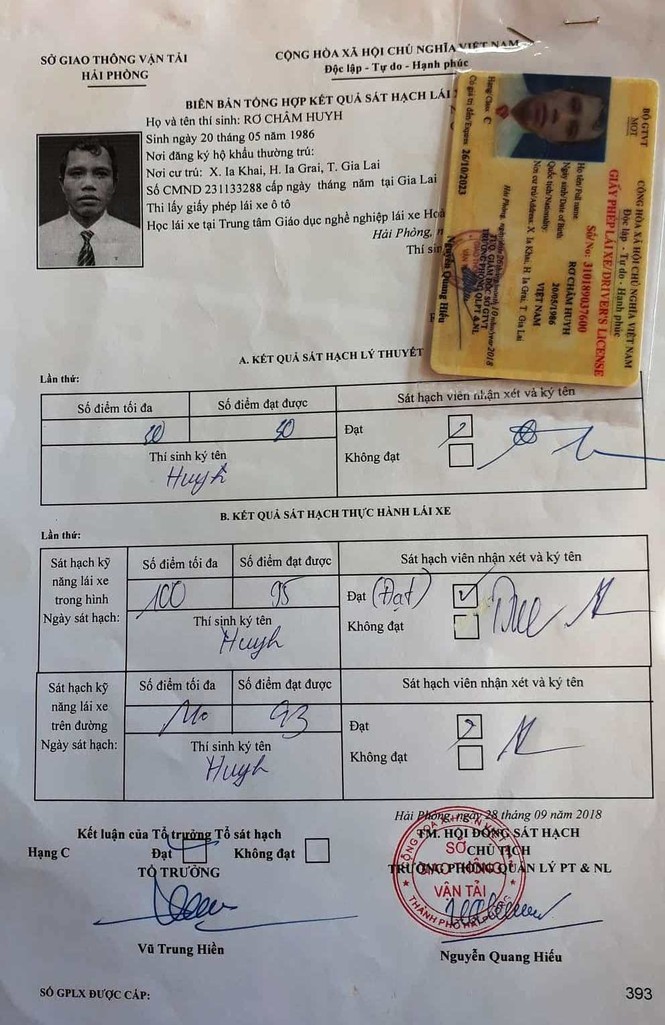 SỞ GIAO THÔNG VẬN TẢI
HẢI PHÒNG
CỘNG HÒA XÃ HỘI CHỦ NGHĨA VIỆT NAM
Độc lập - Tự do - Hạnh phúc
BIÊN BẢN TỔNG HỢP KẾT QUẢ SÁT HẠCH LÁI
Họ và tên thí sinh: RƠ CHÂM HUYH
Sinh ngày 20 tháng 05 năm 1986
Nơi đăng ký hộ khẩu thường trú:
Nơi cư trú: X. Ia Khai, H. Ia Grai, T. Gia Lai
Số CMND 231133288 cấp ngày tháng năm tại Gia Lai
Thi lấy giấy phép lái xe ô tô
Học lái xe tại Trung tâm Giáo dục nghề nghiệp lái xe Hoà
Hải Phòng, n
Thí sin
BỘ GTVT
MOT
CỘNG HÒA XÃ HỘI CHỦ NGHĨA VIỆT NAM
Độc lập - Tự do - Hạnh phúc
GIẤY PHÉP LÁI XE/DRIVER'S LICENSE
Số/No: 310189037600
Họ tên/Full name RƠ CHÂM HUYH
Ngày sinh/Date of Birth 20/05/1986
Quốc tịch/Nationality VIỆT NAM
Nơi cư trú/Address X. Ia Khai, H. Ia Grai, T. Gia Lai
Hải Phòng, 2018
TUQ. GIÁM ĐỐC SỞ GTVT
TRƯỞNG PHÒNG QLPT & NL
Nguyễn Quang Hiếu
Hạng/Class: C
Có giá trị đến/Expires 26/10/2023
A. KẾT QUẢ SÁT HẠCH LÝ THUYẾT
Lần thứ:
Số điểm tối đa Số điểm đạt được Sát hạch viên nhận xét và ký tên
30 30 Đạt
Thí sinh ký tên Không đạt
Huyh
B. KẾT QUẢ SÁT HẠCH THỰC HÀNH LÁI XE
Lần thứ:
Sát hạch kỹ năng lái xe trong hình Ngày sát hạch:
Số điểm tối đa Số điểm đạt được Sát hạch viên nhận xét và ký tên
100 95 Đạt (Đạt)
Thí sinh ký tên Không đạt
Huyh
Sát hạch kỹ năng lái xe trên đường Ngày sát hạch:
Số điểm tối đa Số điểm đạt được Sát hạch viên nhận xét và ký tên
93 Đạt
Thí sinh ký tên Không đạt
Huyh
Hải Phòng, ngày 28 tháng 09 năm 2018
Kết luận của Tổ trưởng Tổ sát hạch
TM. HỘI ĐỒNG SÁT HẠCH
Hạng C Đạt Không đạt
CHỦ TỊCH
TỔ TRƯỞNG
TRƯỞNG PHÒNG QUẢN LÝ PT & NL
SỞ
GIAO THÔNG
VẬN TẢI
THÀNH PHỐ HẢI PHÒNG
Vũ Trung Hiền
Nguyễn Quang Hiếu
SỐ GPLX ĐƯỢC CẤP:
393